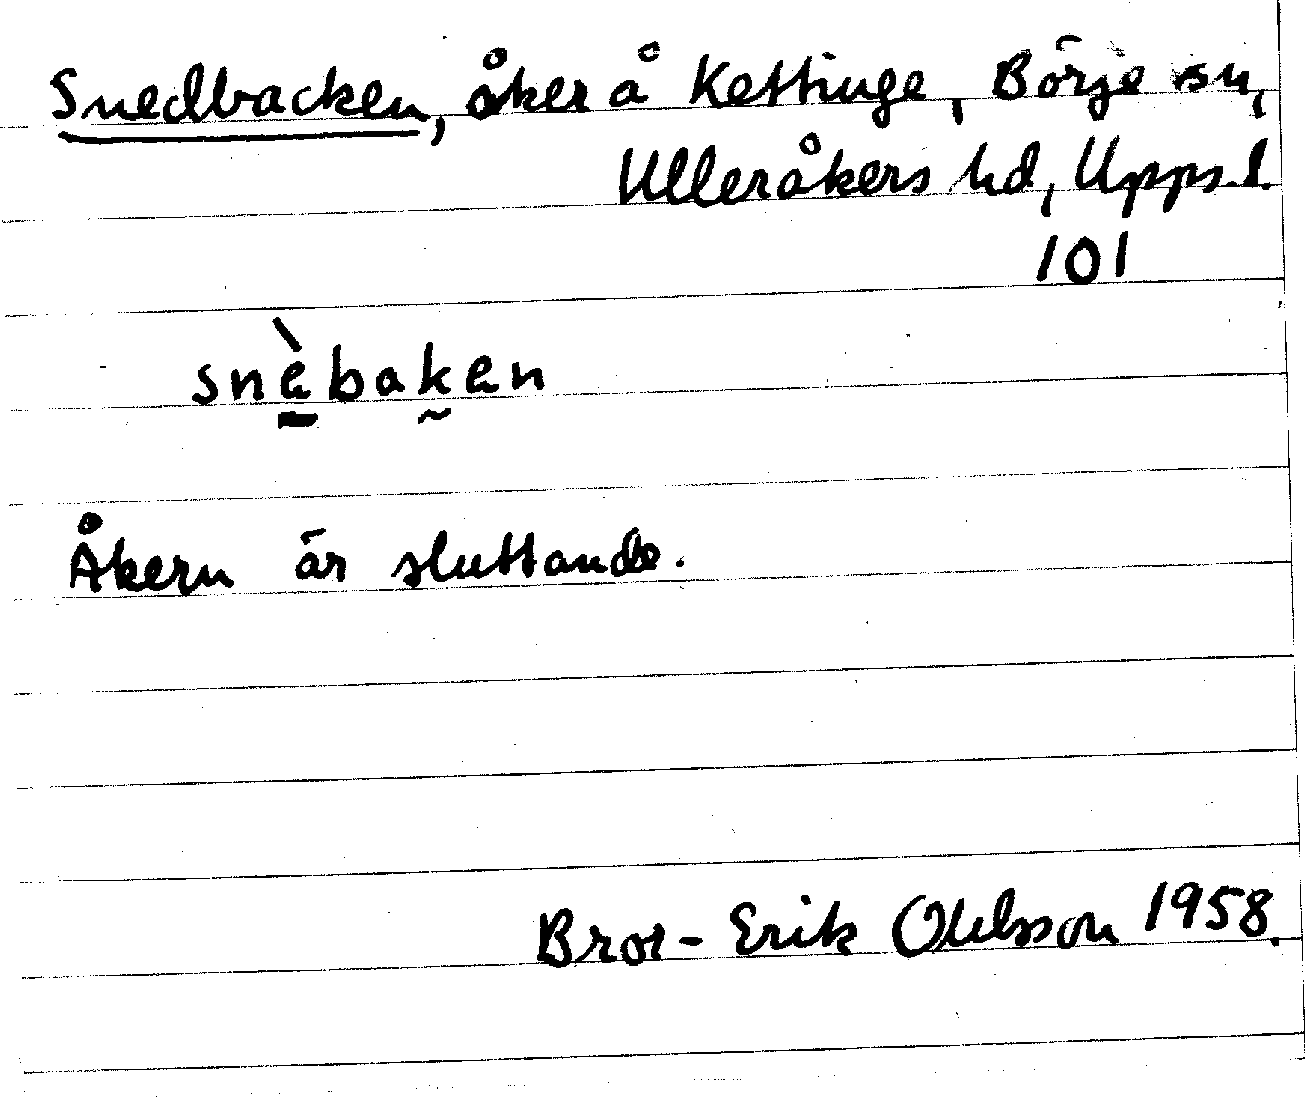 Snedbacken, åker å Kettinge, Börje sn,
Ulleråkers hd, Upps. l.
101
snèbaken
Åkern är sluttande.
Bror-Erik Ohlsson 1958.